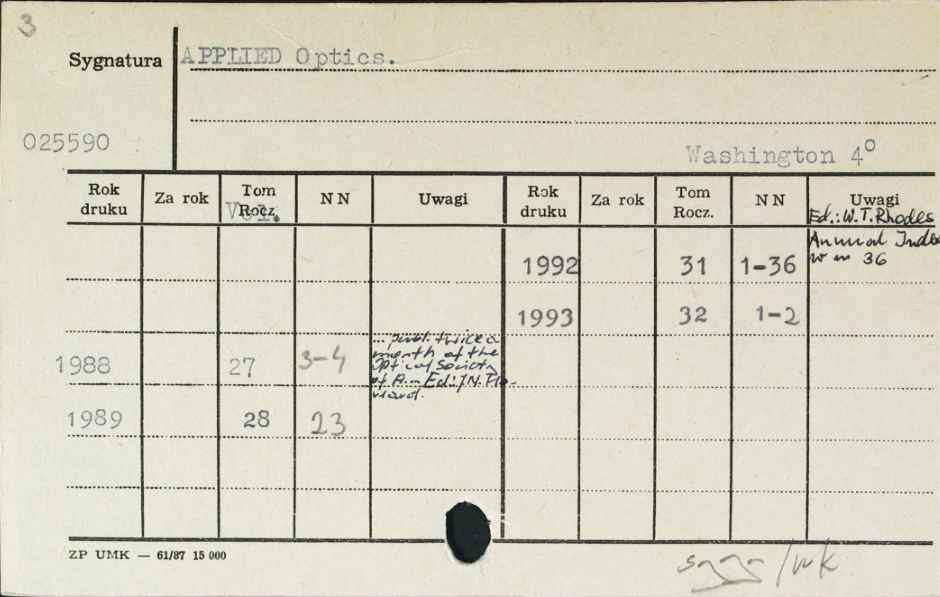 3
Sygnatura APPLIED Optics.
025590
Washington 4°
Rok druku Za rok Tom Rocz. Vol. NN Uwagi Rok druku Za rok Tom Rocz. NN Uwagi
Ed.: W.T. Rhodes
Annual Index
w nr 36
1992 31 1-36
1993 32 1-2
... publ. twice a
month of the
Optical Society
of A.- Ed:
1988 27 3-4
1989 28 23
ZP UMK — 61/87 15 000
/wk